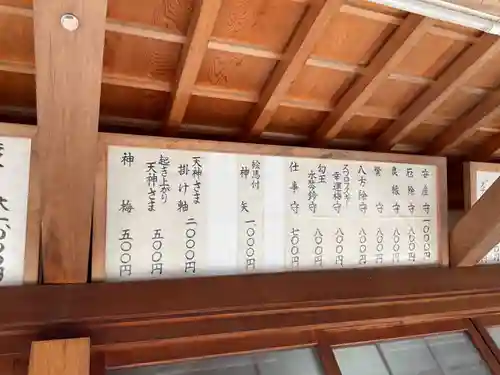 安産守 一、〇〇〇円
厄除守 八〇〇円
良縁守 八〇〇円
八方除守 八〇〇円
幸運梅守 八〇〇円
勾玉
水琴鈴守 八〇〇円
仕事守 七〇〇円
絵馬付
神矢 一、〇〇〇円
天神さま
掛け軸 二〇〇〇円
起き上がり
天神さま 五〇〇円
神梅 五〇〇円